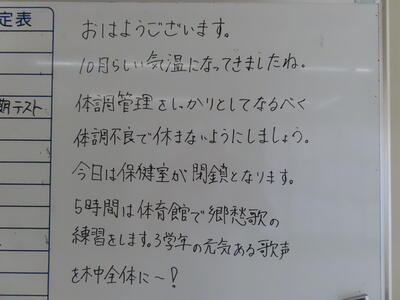 定表
期テスト
おはようございます。
10月らしい気温になってきましたね。
体調管理をしっかりとしてなるべく
体調不良で休まないようにしましょう。
今日は保健室が閉鎖となります。
5時間は体育館で郷愁歌の
練習をします。3学年の元気ある歌声
を木中全体に〜!